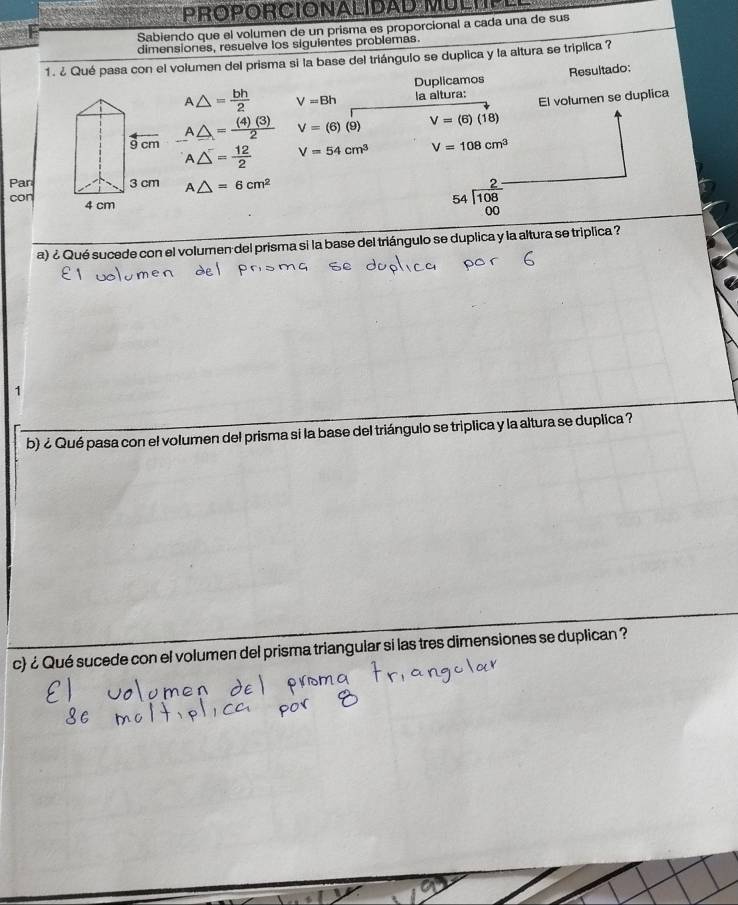 PROPORCIONALIDAD
Sabiendo que el volumen de un prisma es proporcional a cada una de sus
dimensiones, resuelve los siguientes problemas.
1. ¿ Qué pasa con el volumen del prisma si la base del triángulo se duplica y la altura se triplica ?
Duplicamos
la altura:
Resultado:
El volumen se duplica
A△ = bh/2
V = Bh
A△ = (4) (3)/2
V = (6) (9)
V = (6) (18)
A△ = 12/2
V = 54 cm³
V = 108 cm³
A△ = 6 cm²
9 cm
3 cm
4 cm
2
54 108
00
Par
con
a) ¿ Qué sucede con el volumen del prisma si la base del triángulo se duplica y la altura se triplica ?
El volumen del prisma se duplica por 6
1
b) ¿ Qué pasa con el volumen del prisma si la base del triángulo se triplica y la altura se duplica ?
c) ¿ Qué sucede con el volumen del prisma triangular si las tres dimensiones se duplican ?
El volumen del prisma triangular
se multiplica por 8